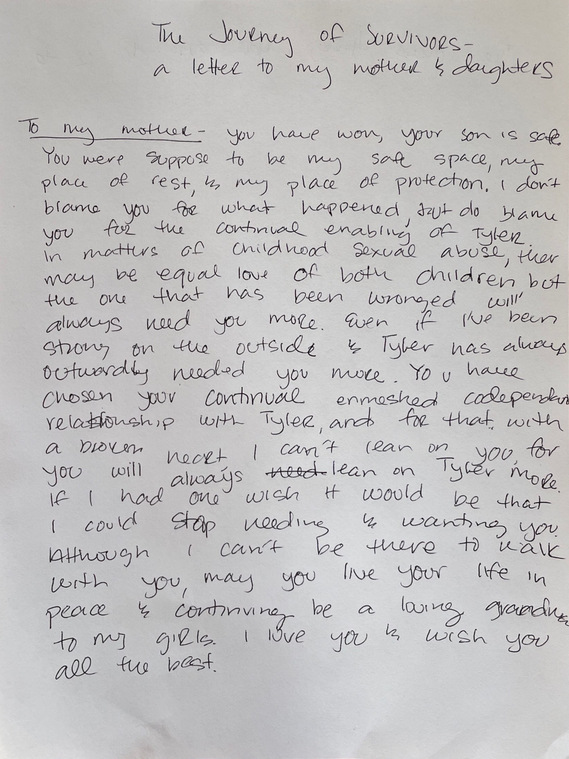 The Journey of SURVIVORS-
a letter to my mother & daughters
To my mother- you have won, your son is safe.
You were suppose to be my safe space, my
place of rest, & my place of protection. I don't
blame you for what happened, but do blame
you for the continual enabling of Tyler.
In matters of childhood sexual abuse, ther
may be equal love of both children but
the one that has been wronged will
always need you more. Even if I've been
strong on the outside & Tyler has always
outwardly needed you more. You have
chosen your continual enmeshed codependen
relationship with Tyler, and for that, with
a broken heart I can't lean on you, for
you will always need lean on Tyler more.
If I had one wish it would be that
I could stop needing & wanting you.
Although I can't be there to walk
with you, may you live your life in
peace & continuing be a loving grandm
to my girls. I love you & wish you
all the best.